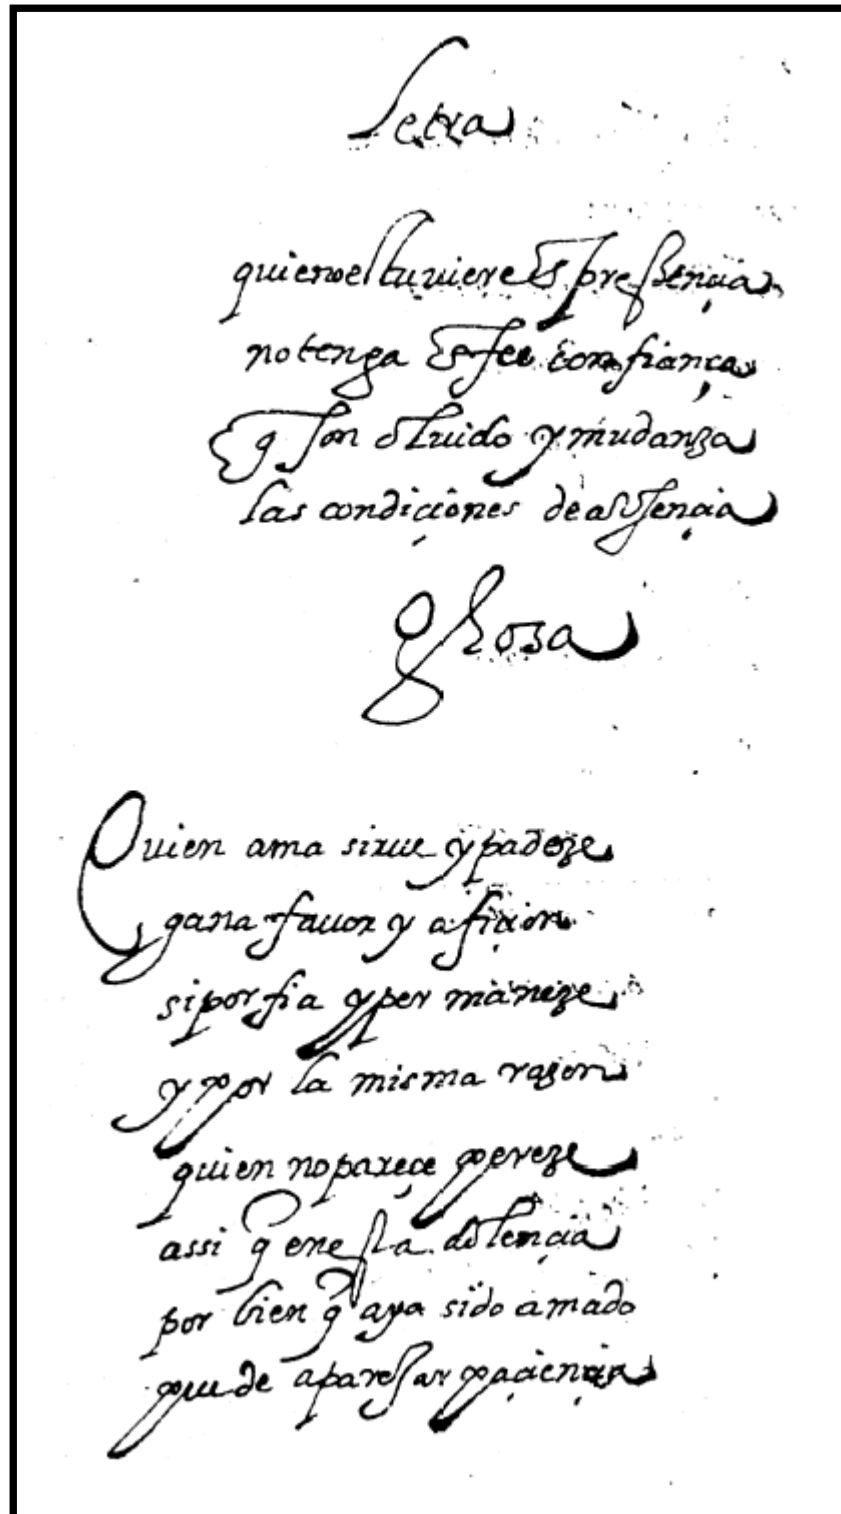 letra
quien no estuviere en pressençia
no tenga en fee confiança
q son oluido y mudanza
las condiçiones de aussençia
glosa
Quien ama sirue y padeze
gana fauor y afiçion
si porfia y permaneze
y por la misma razon
quien no pareçe pereze
assi q en esta dolençia
por bien q aya sido amado
puede aparejar paçiençia